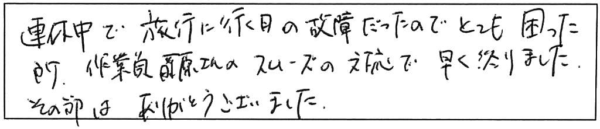 連休中で旅行に行く日の故障だったのでとても困った
所、作業員藤原さんのスムーズの対応で早く治りました.
その節はありがとうございました.